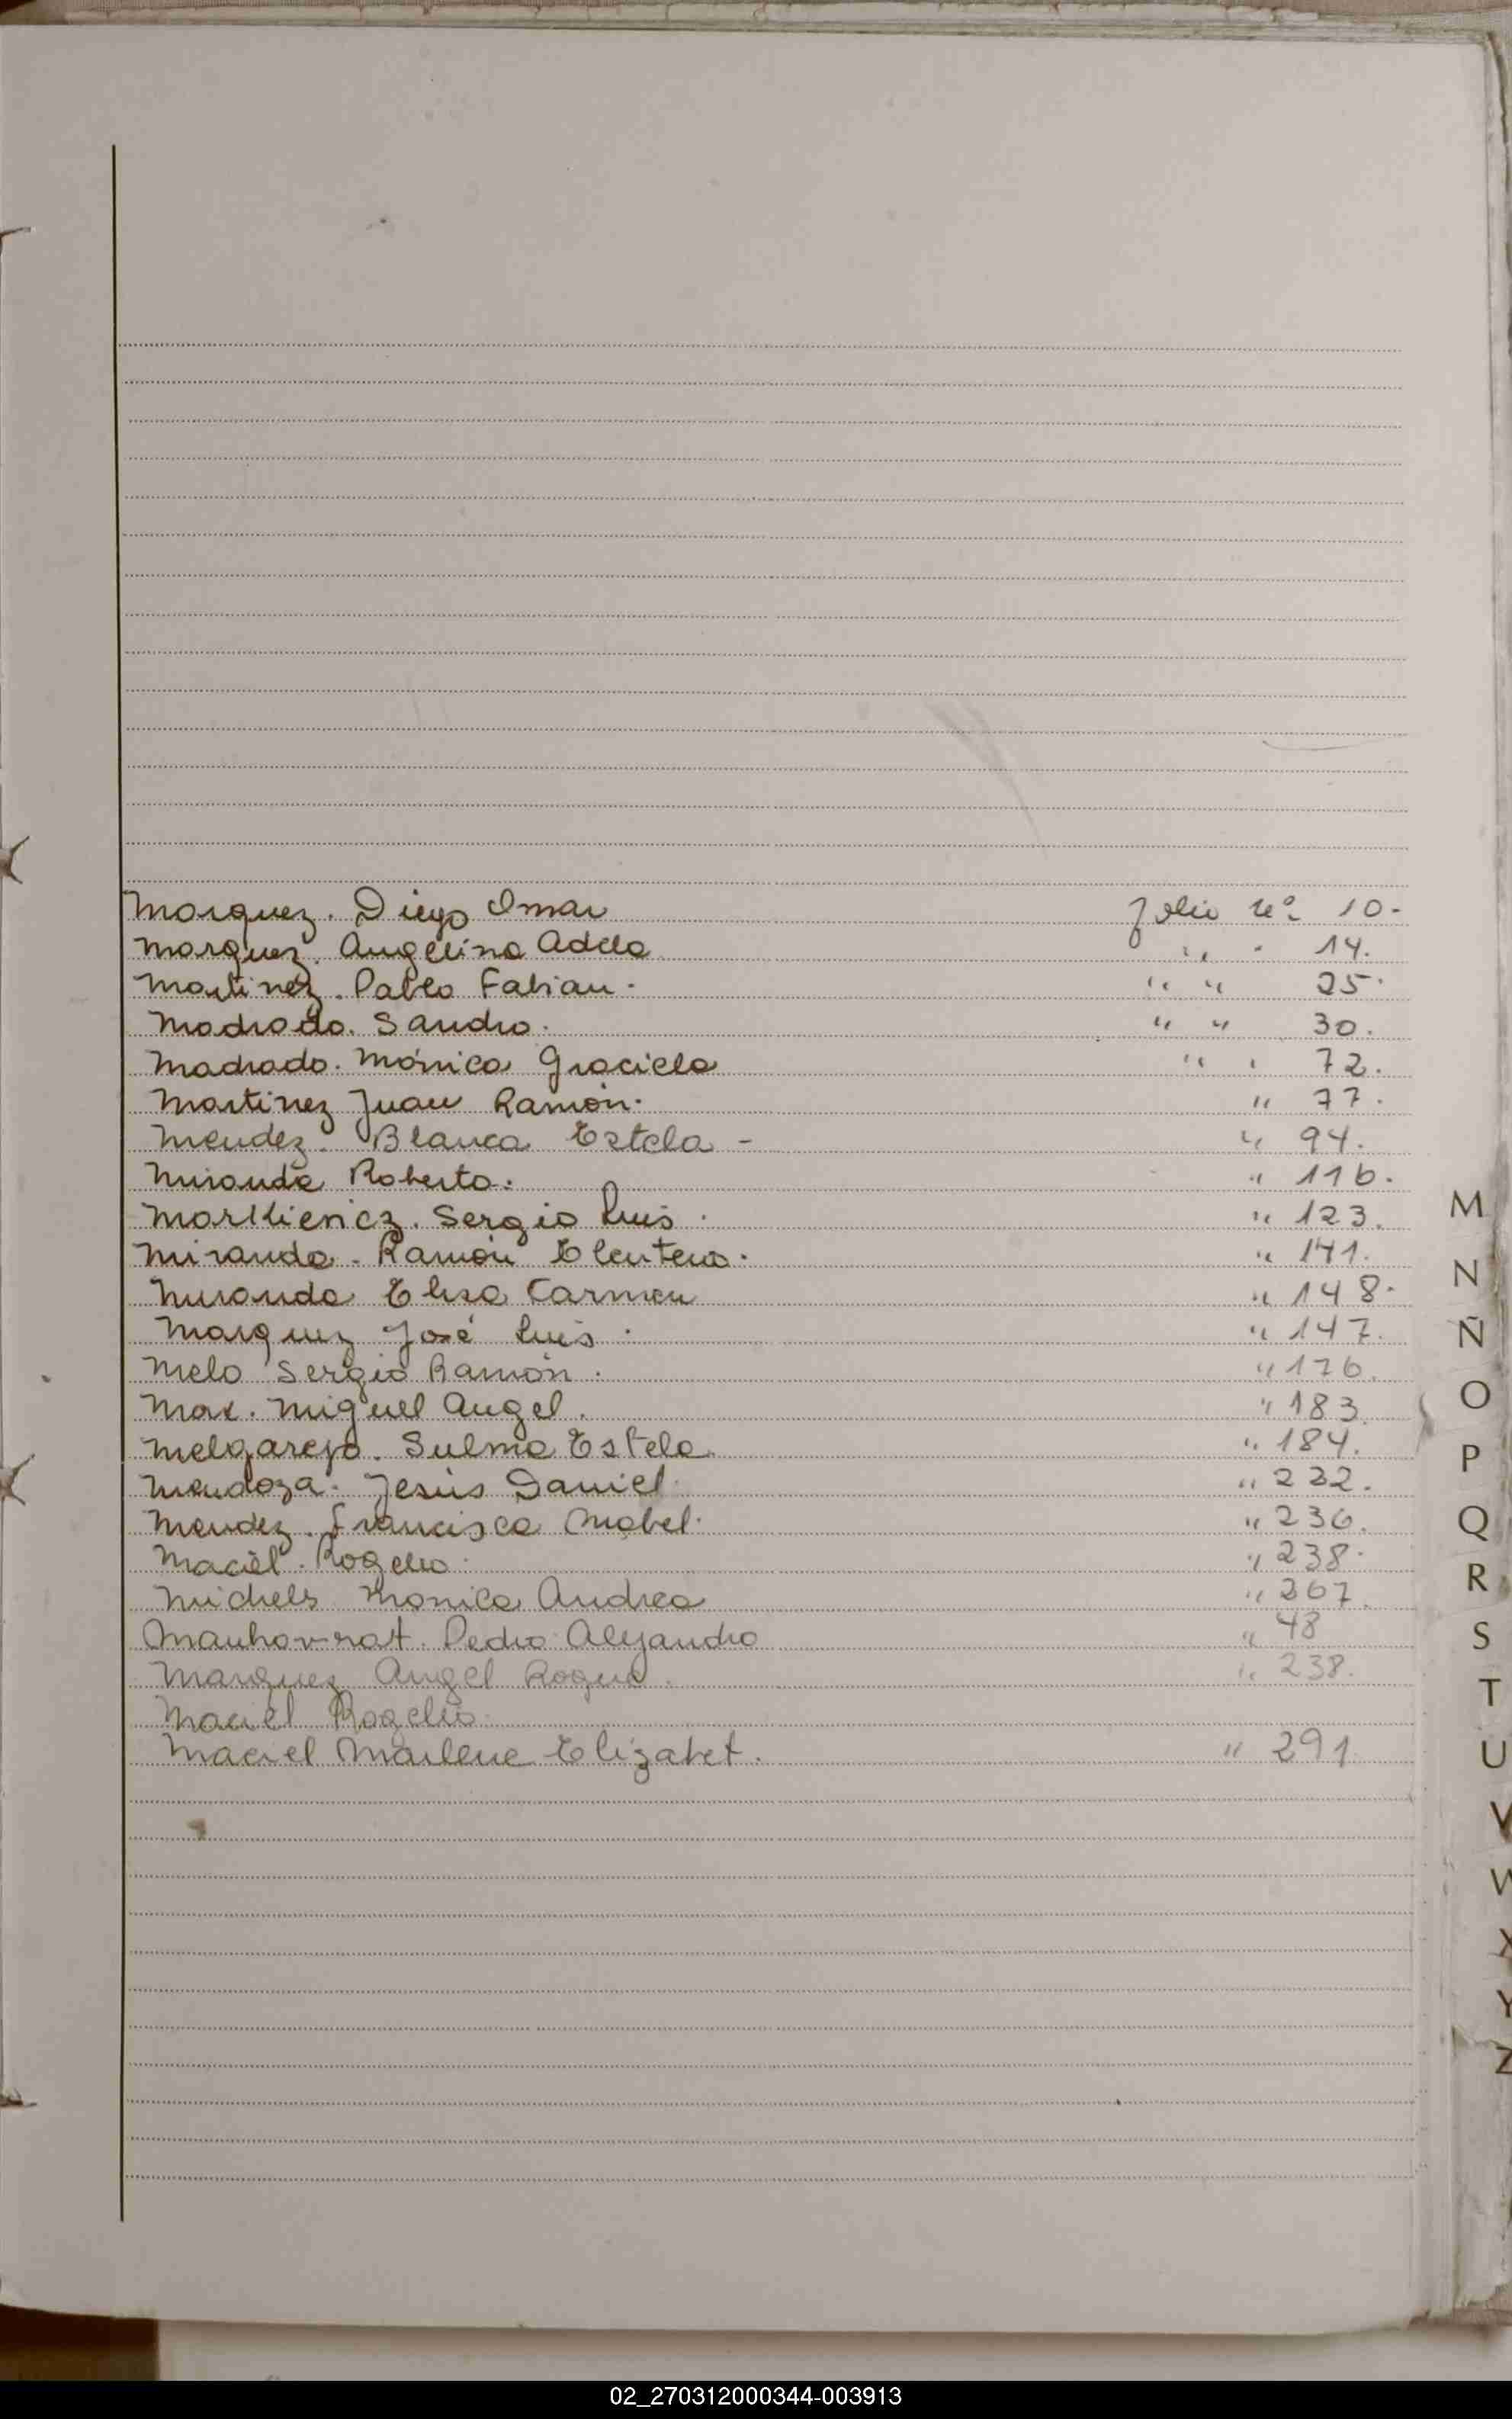 Marquez. Diego Omar folio Nº 10-
Marquez. Angelina Adela " " 14.
Martinez. Pablo Fabian. " " 25.
Madrado. Sandro. " " 30.
Madrado. Mónica Graciela " " 72.
Martinez Juan Ramón. " 77.
Mendez. Blanca Estela - " 94.
Miranda Roberto. " 116.
Markiericz. Sergio Luis. " 123.
Miranda. Ramón Eleuterio. " 141.
Miranda Elisa Carmen " 148.
Marquez José Luis. " 147.
Melo Sergio Ramón. " 176.
Miguel Angel. " 183.
Melgarejo. Sulma Estela. " 184.
Mendoza. Jesús Daniel. " 232.
Mendez. Francisca Mabel. " 236.
Maciel. Rogelio. " 238.
Michels Monica Andrea " 267.
Pedro Alejandro " 48
Marquez Angel Roque. " 238.
Maciel Rogelio.
Maciel Marlene Elizabet. " 291.
M
N
Ñ
O
P
Q
R
S
T
U
V
W
X
Y
Z
02_270312000344-003913